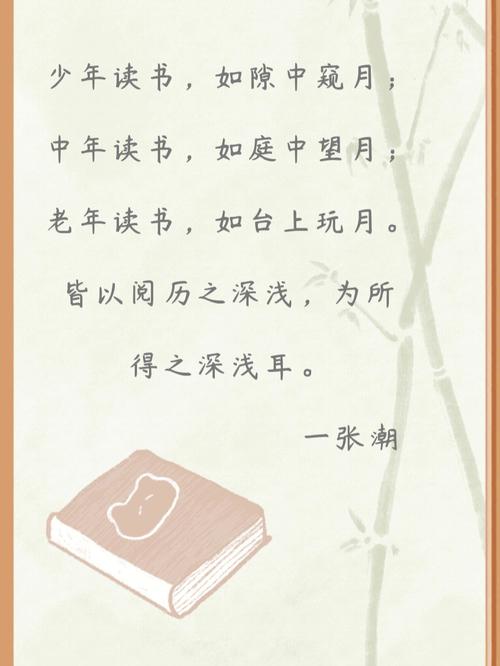 少年读书，如隙中窥月；
中年读书，如庭中望月；
老年读书，如台上玩月。
皆以阅历之深浅，为所
得之深浅耳。
一张潮